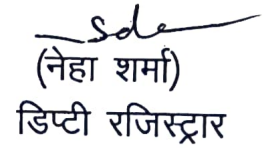 Sd/-
(नेहा शर्मा)
डिप्टी रजिस्ट्रार